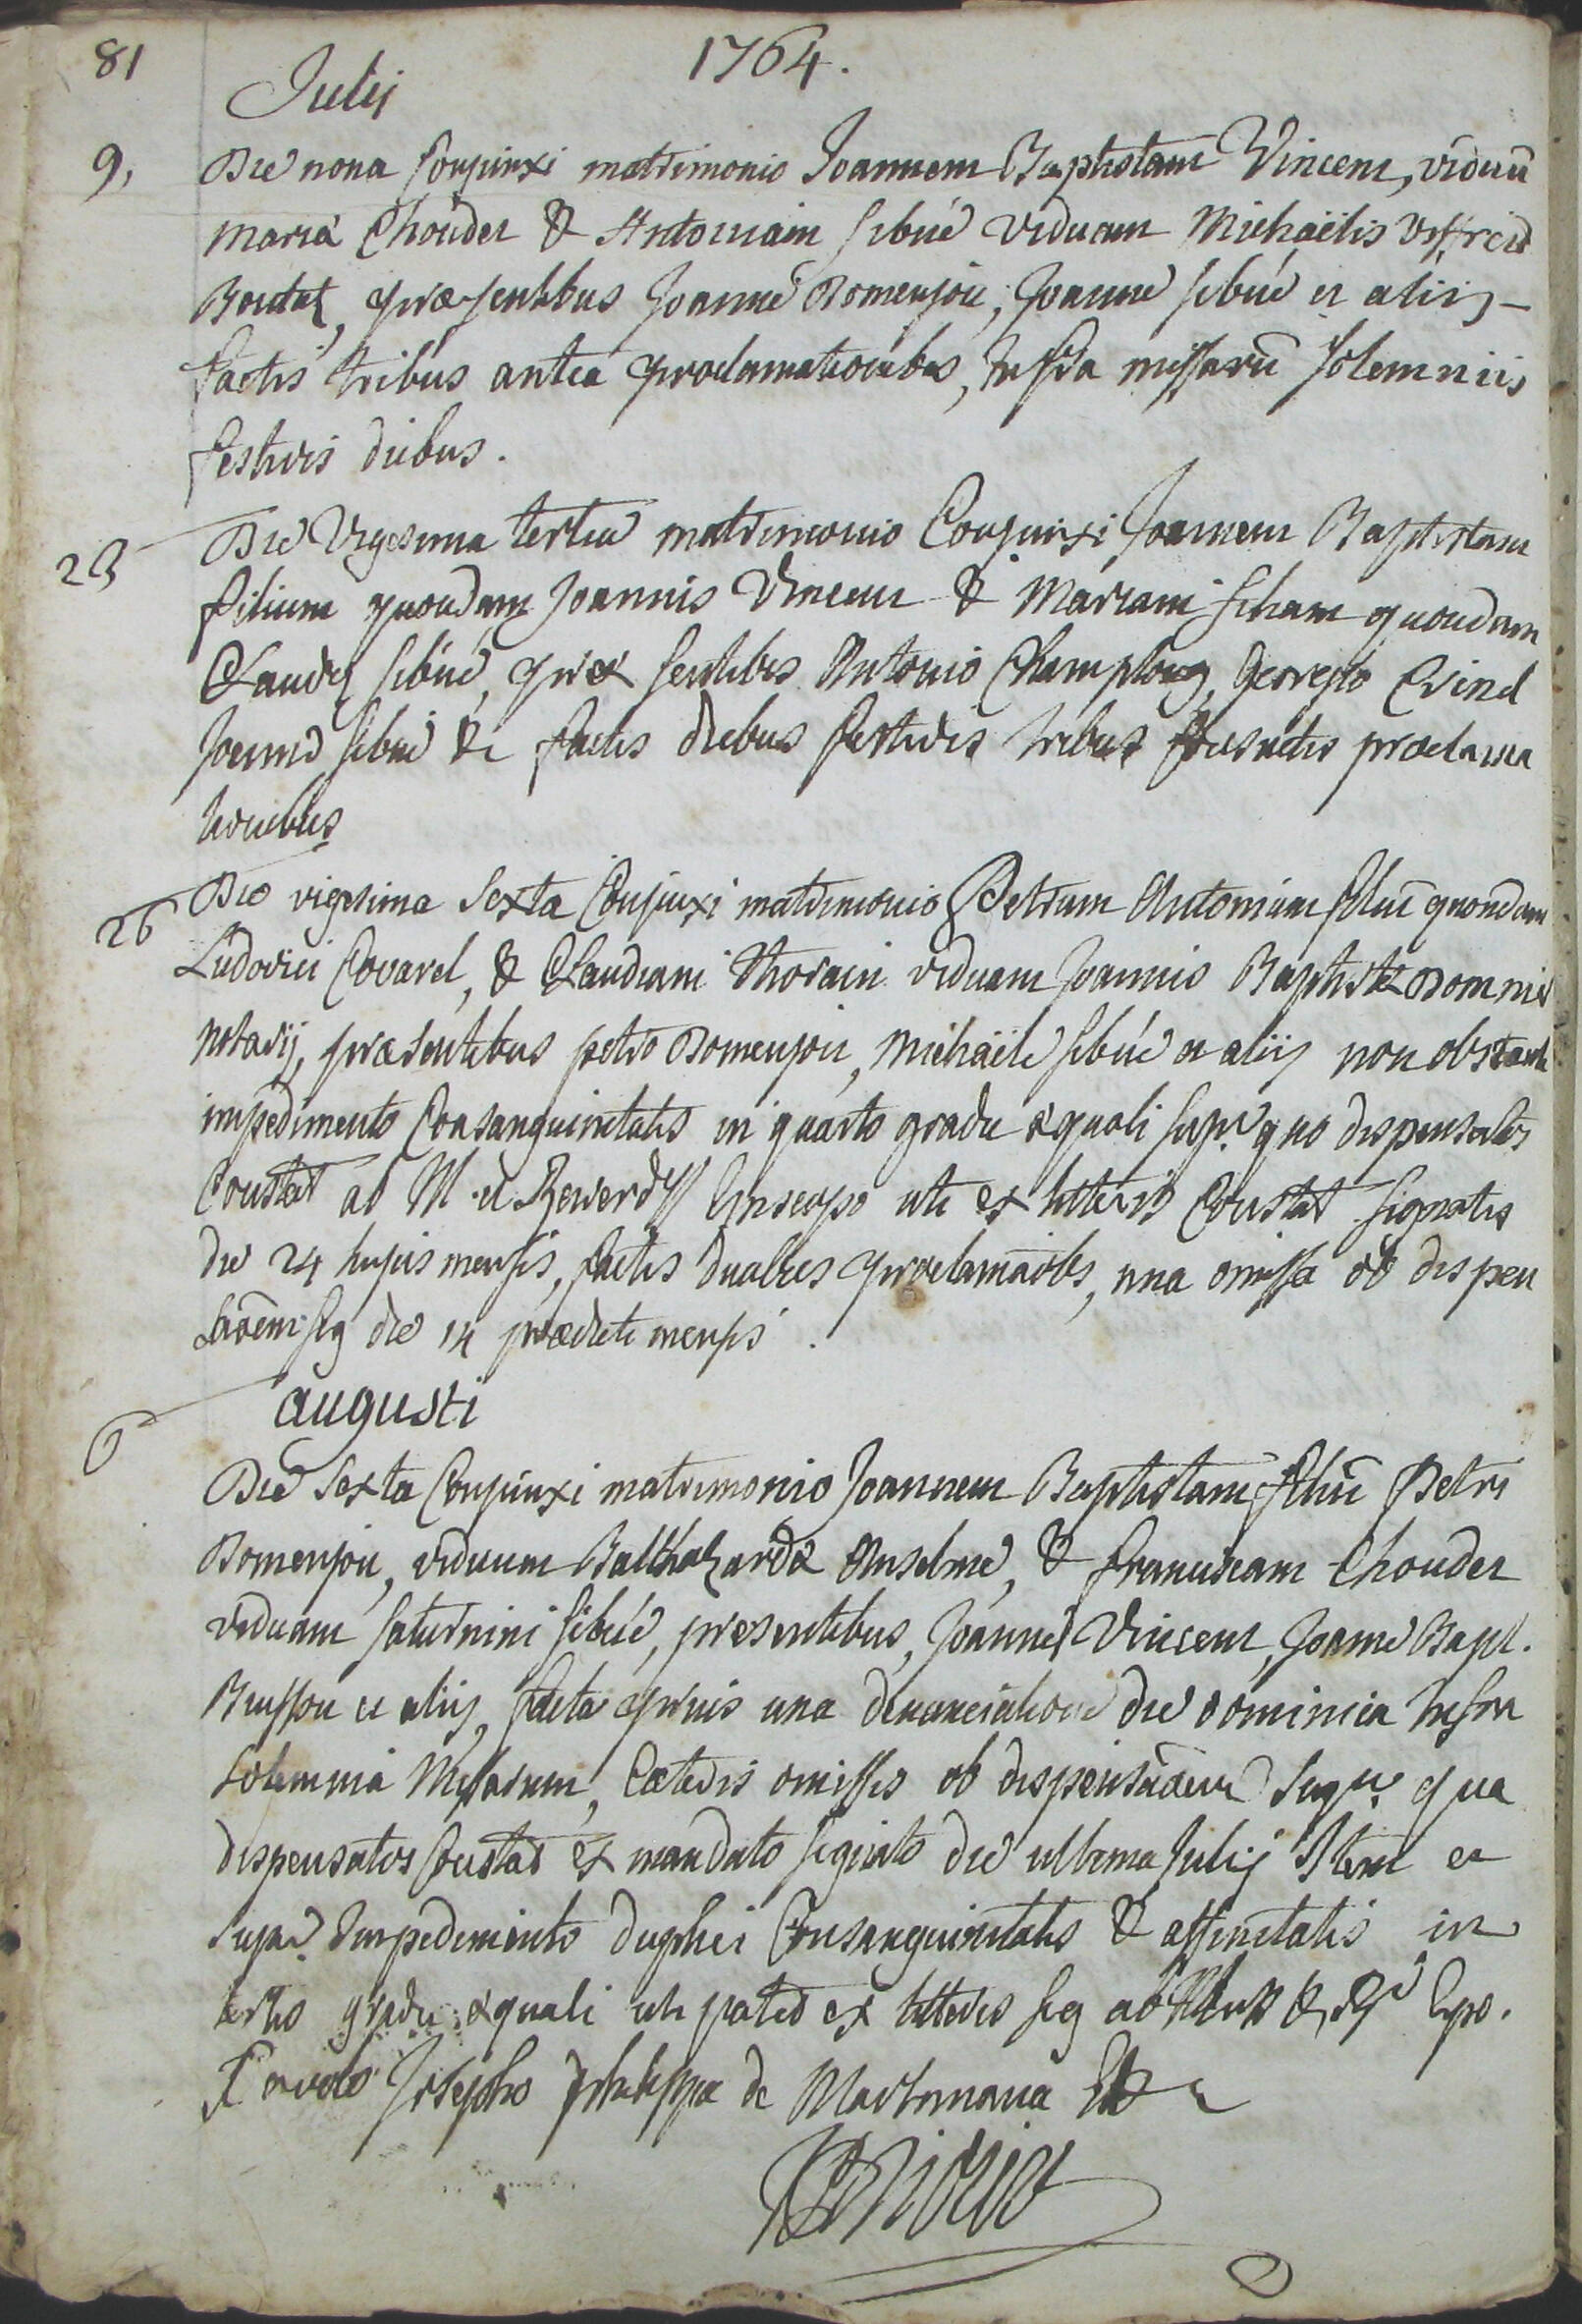 81
1764.
Julij
9.
Die nona Conjunxi matrimonio Joannem Baptistam Vincent, viduū
Mariæ Choudet & Antoniam Sibué viduam Michaëlis
Boutaz, præsentibus Joanne Domenjou, Joanne Sibué et aliis
factis tribus antea proclamationibus, infra missarū solemniis
festivis diebus.
23
Die Vigesima tertia matrimonio Conjunxi Joannem Baptistam
filium quondam Joannis Vincent & Mariam filiam quondam
Claudij Sibué, præsentibus Antonio Champlong, Georgio
Joanne Sibué &c factis diebus festivis tribus consuetis proclama
tionibus
26
Die vigesima Sexta Conjunxi matrimonio Petrum Antonium filiū quondam
Ludovici Covarel, & Claudiam Thorain viduam Joannis Baptistæ Domnie
notarij, præsentibus petro Domenjou, Michaële Sibué et aliis non obstante
impedimento Consanguinitatis in quarto gradu æquali supr quo dispensatos
Constat ab Ill. et Reverdss Episcopo uti ex litteris Constat signatis
die 24 hujus mensis, factis duabus proclamāōbs, una omissa ob dispen
saōem sig die 14 prædicti mensis.
augusti
6
Die Sexta Conjunxi matrimonio Joannem Baptistam filiū Petri
Domenjou, viduum Balthazardæ Anselme, & Franciscam Choudet
viduam Saturnini Sibué, præsentibus, Joanne Vincent, Joanne Bapt.
Buisson et aliis, facta prius una denunciatione die dominica infra
Solemnia Missarum, Cæteris omissis ob dispensāōem supr qua
dispensatos Constat ex mandato signato die ultima Julij Item et
supr Impedimento duplici Consanguinitatis & affinitatis in
tertio gradu æquali uti patet ex litteris sig ab & Epo.
Carolo Josepho Philippa de Martiniana